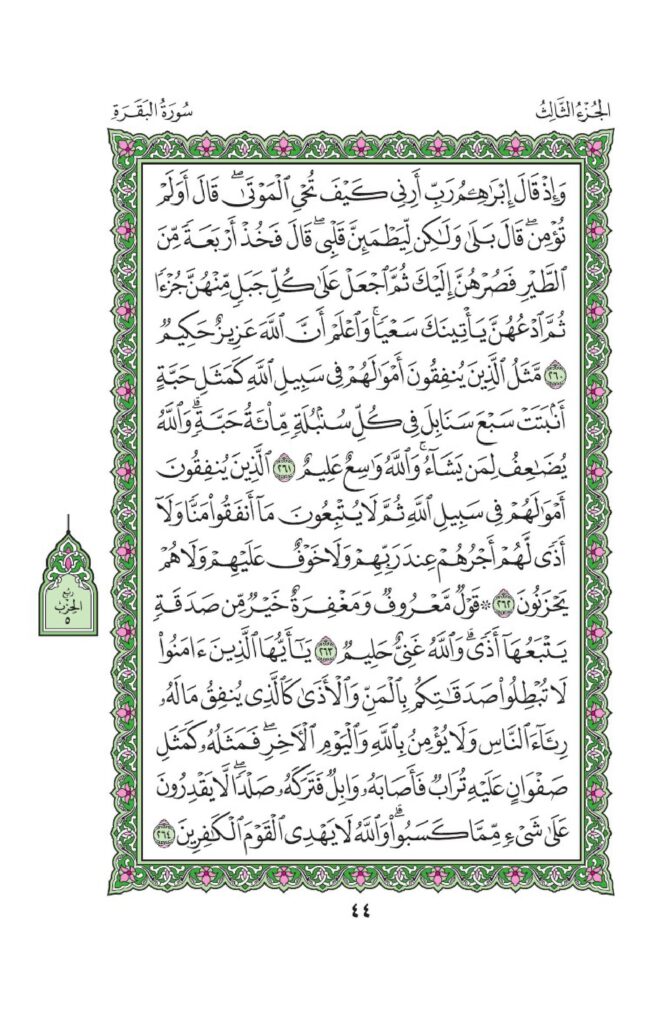 الجُزْءُ الثَّالِثُ
سُورَةُ البَقَرَةِ
وَإِذْ قَالَ إِبْرَٰهِـۧمُ رَبِّ أَرِنِي كَيْفَ تُحْيِ ٱلْمَوْتَىٰۖ قَالَ أَوَلَمْ
تُؤْمِنۖ قَالَ بَلَىٰ وَلَـٰكِن لِّيَطْمَئِنَّ قَلْبِيۖ قَالَ فَخُذْ أَرْبَعَةً مِّنَ
ٱلطَّيْرِ فَصُرْهُنَّ إِلَيْكَ ثُمَّ ٱجْعَلْ عَلَىٰ كُلِّ جَبَلٍ مِّنْهُنَّ جُزْءًا
ثُمَّ ٱدْعُهُنَّ يَأْتِينَكَ سَعْيًاۚ وَٱعْلَمْ أَنَّ ٱللَّهَ عَزِيزٌ حَكِيمٌ
٢٦٠ مَّثَلُ ٱلَّذِينَ يُنفِقُونَ أَمْوَٰلَهُمْ فِي سَبِيلِ ٱللَّهِ كَمَثَلِ حَبَّةٍ
أَنۢبَتَتْ سَبْعَ سَنَابِلَ فِي كُلِّ سُنۢبُلَةٍ مِّا۟ئَةُ حَبَّةٍۗ وَٱللَّهُ
يُضَـٰعِفُ لِمَن يَشَآءُۚ وَٱللَّهُ وَٰسِعٌ عَلِيمٌ ٢٦١ ٱلَّذِينَ يُنفِقُونَ
أَمْوَٰلَهُمْ فِي سَبِيلِ ٱللَّهِ ثُمَّ لَا يُتْبِعُونَ مَآ أَنفَقُوا۟ مَنًّا وَلَآ
أَذًى لَّهُمْ أَجْرُهُمْ عِندَ رَبِّهِمْ وَلَا خَوْفٌ عَلَيْهِمْ وَلَا هُمْ
يَحْزَنُونَ ٢٦٢ ۞ قَوْلٌ مَّعْرُوفٌ وَمَغْفِرَةٌ خَيْرٌ مِّن صَدَقَةٍ
يَتْبَعُهَآ أَذًىۗ وَٱللَّهُ غَنِيٌّ حَلِيمٌ ٢٦٣ يَـٰٓأَيُّهَا ٱلَّذِينَ ءَامَنُوا۟
لَا تُبْطِلُوا۟ صَدَقَـٰتِكُم بِٱلْمَنِّ وَٱلْأَذَىٰ كَٱلَّذِي يُنفِقُ مَالَهُۥ
رِئَآءَ ٱلنَّاسِ وَلَا يُؤْمِنُ بِٱللَّهِ وَٱلْيَوْمِ ٱلْـَٔاخِرِۖ فَمَثَلُهُۥ كَمَثَلِ
صَفْوَانٍ عَلَيْهِ تُرَابٌ فَأَصَابَهُۥ وَابِلٌ فَتَرَكَهُۥ صَلْدًاۖ لَّا يَقْدِرُونَ
عَلَىٰ شَيْءٍ مِّمَّا كَسَبُوا۟ۗ وَٱللَّهُ لَا يَهْدِي ٱلْقَوْمَ ٱلْكَـٰفِرِينَ ٢٦٤
ربع
الحزب
٥
٤٤